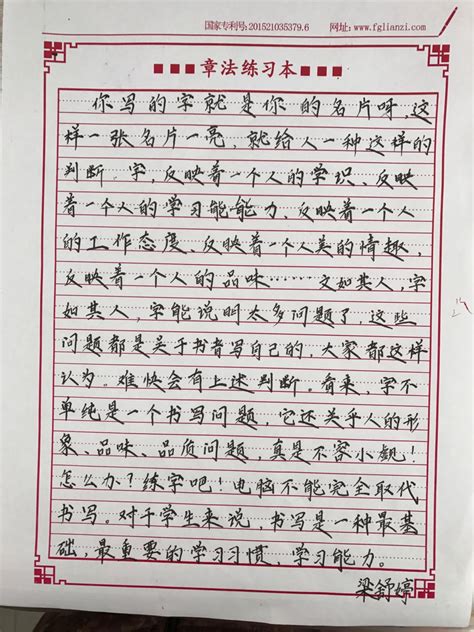 国家专利号:201521035379.6 网址:www.fglianzi.com
章法练习本
你写的字就是你的名片呀,这
样一张名片一亮,就给人一种这样的
判断。字,反映着一个人的学识、反映
着一个人的学习能能力、反映着一个人
的工作态度、反映着一个人美的情趣,
反映着一个人的品味……文如其人,字
如其人,字能说明太多问题了,这些
问题都是关于书者写自己的,大家都这样
认为。难怏会有上述判断。看来,字不
单纯是一个书写问题,它还关乎人的形
象、品味、品质问题,真是不容小觑!
怎么办?练字吧!电脑不能完全取代
书写。对于学生来说,书写是一种最基
础,最重要的学习习惯、学习能力。
梁舒婷